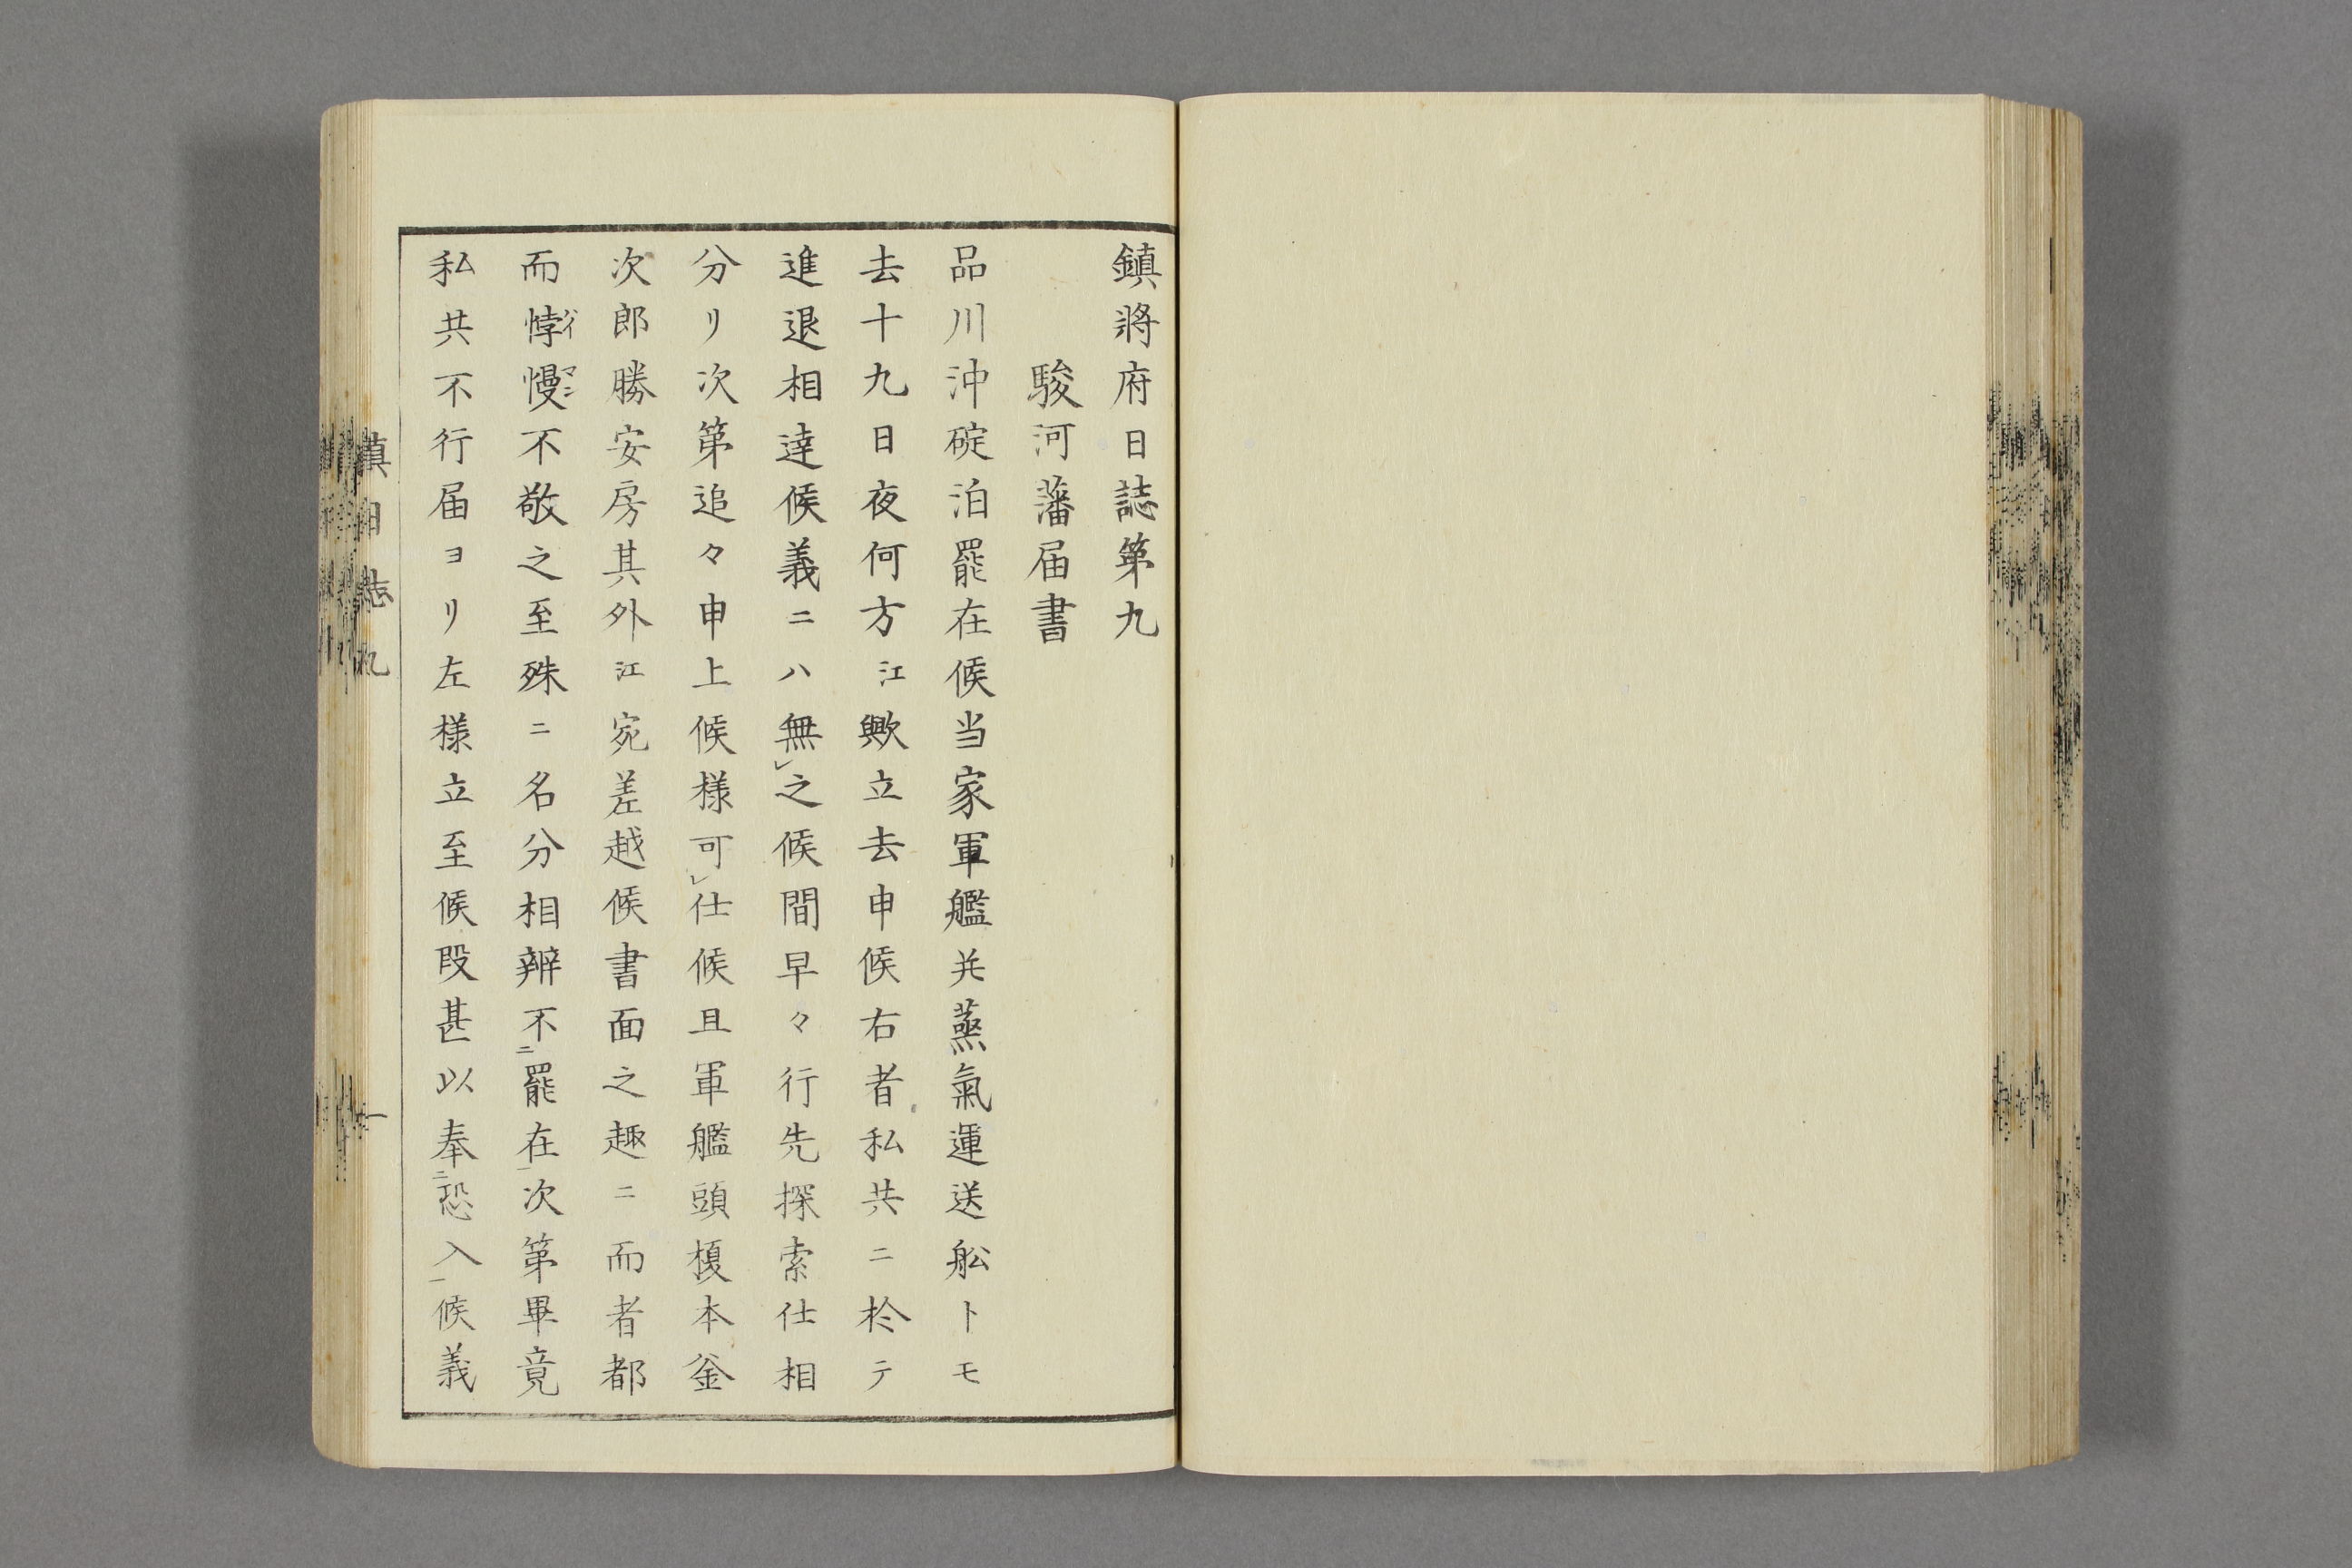 鎮將府日誌第九
駿河藩届書
品川沖碇泊罷在候当家軍艦并蒸氣運送舩トモ
去十九日夜何方江歟立去申候右者私共ニ於テ
進退相達候義ニハ無㆑之候間早々行先探索仕相
分リ次第追々申上候様可㆑仕候且軍艦頭榎本釡
次郎勝安房其外江宛差越候書面之趣ニ而者都
而悖慢不敬之至殊ニ名分相辨不㆓罷在㆒次第畢竟
私共不行届ヨリ左様立至候段甚以奉㆓恐入㆒候義